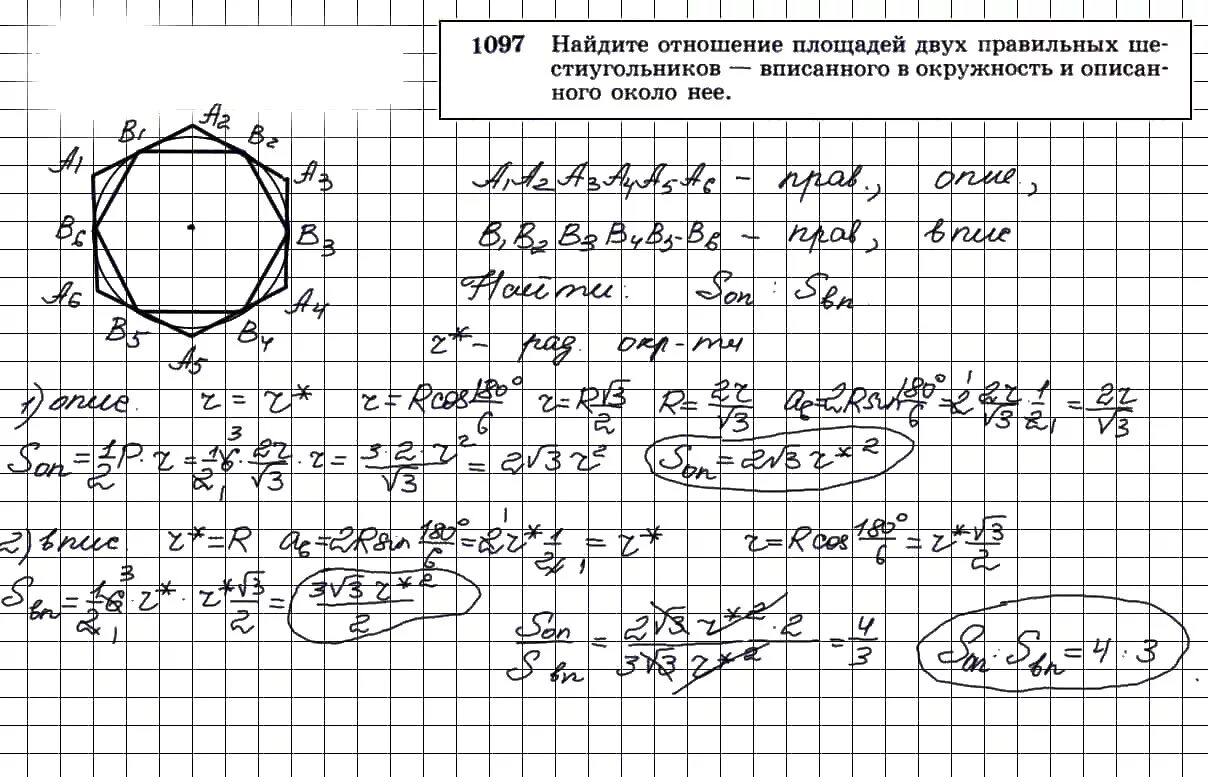 1097 Найдите отношение площадей двух правильных ше-
стиугольников — вписанного в окружность и описан-
ного около нее.
A2
B1 B2
A1 A3
B6 B3
A6 A4
B5 B4
A5
A1A2A3A4A5A6 – прав., опис.,
B1B2B3B4B5B6 – прав, впис
Найти: Sоп : Sвп
r* – рад. окр-ти
1) опис. r = r* r = R cos 180°/6 r = R √3/2 R = 2r/√3 a6 = 2R sin 180°/6 = 2 · 2r/√3 · 1/2 = 2r/√3
Sоп = 1/2 P · r = 1/2 · 6 · 2r/√3 · r = 3·2·r²/√3 = 2√3 r² Sоп = 2√3 r*²
2) впис. r* = R a6 = 2R sin 180°/6 = 2r* 1/2 = r* r = R cos 180°/6 = r* √3/2
Sвп = 1/2 · 6 · r* · r* √3/2 = 3√3 r*²/2
Sоп/Sвп = 2√3 r*² · 2/3√3 r*² = 4/3 Sоп : Sвп = 4 : 3